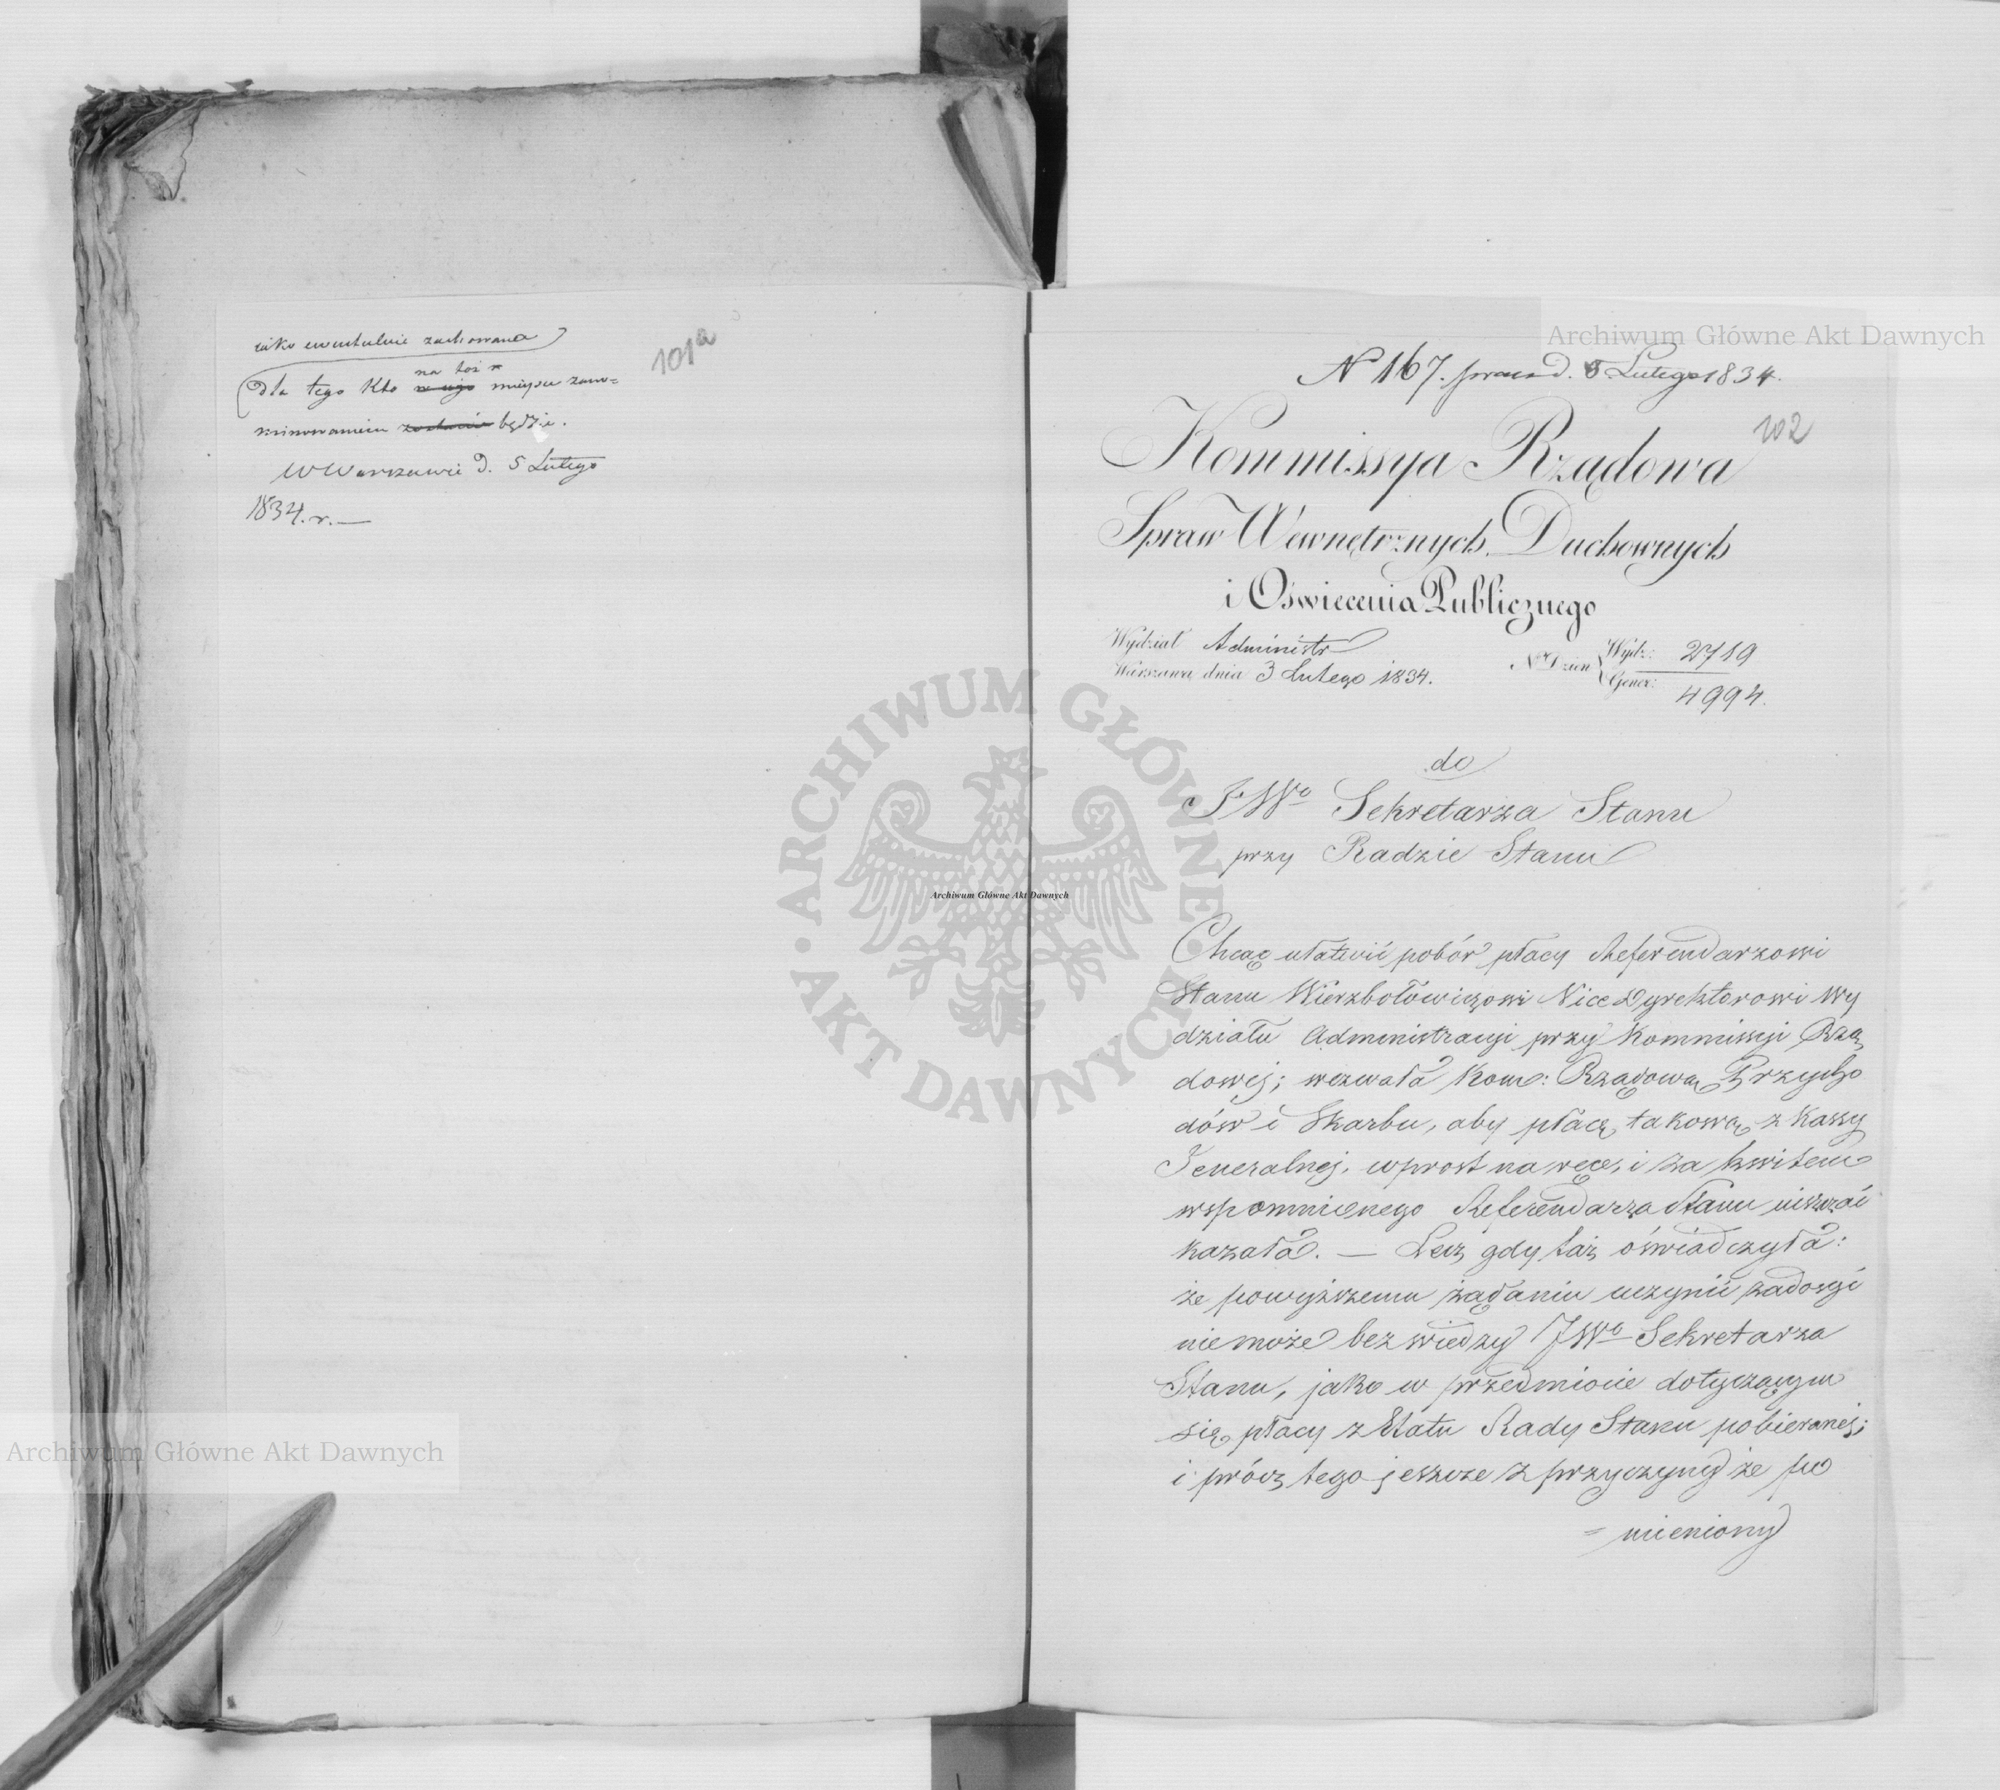 jako ewentualnie zachowana
dla tego kto na toż miejsce zano=
minowanem będzie.
W Warszawie d. 5 Lutego
1834. r.—
101a
N 167. d. 5 Lutego 1834.
102
Kommissya Rządowa
Spraw Wewnętrznych, Duchownych
i Oświecenia Publicznego
Wydział Administr
Warszawa, dnia 3 Lutego 1834.
Nr Dzien Wydz: 2719
Gener: 4994.
do
JWo Sekretarza Stanu
przy Radzie Stanu
Chcąc ułatwić pobór płacy Referendarzowi
Stanu Wierzbołowiczowi Vice Dyrektorowi Wy
działu Administracyi przy Kommissyi Rzą
dowej; wezwała Kom: Rządową Przycho
dów i Skarbu, aby płacę takową z Kassy
Jeneralnej, wprost na ręce, i za kwitem
wspomnionego Referendarza Stanu uiszczać
kazała. — Lecz gdy taż oświadczyła:
że powyższemu żądaniu uczynić zadosyć
nie może bez wiedzy JWo Sekretarza
Stanu, jako w przedmiocie dotyczącym
się płacy z Etatu Rady Stanu pobieranej;
i prócz tego jeszcze z przyczyny że po
= mieniony
Archiwum Główne Akt Dawnych
Archiwum Główne Akt Dawnych
Archiwum Główne Akt Dawnych
ARCHIWUM GŁÓWNE · AKT DAWNYCH ·